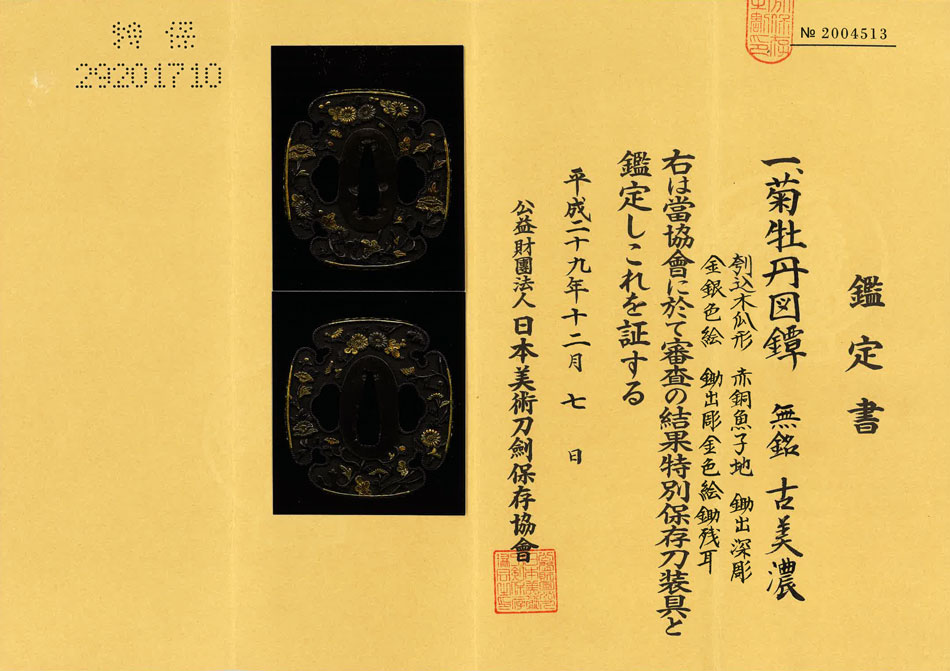 № 2004513
鑑定書
一、菊牡丹図鐔 無銘 古美濃
刳込木瓜形 赤銅魚子地 鋤出深彫
金銀色絵 鋤出彫金色絵鋤残耳
右は當協會に於て審査の結果特別保存刀装具と
鑑定しこれを証する
平成二十九年十二月七日
公益財團法人日本美術刀劍保存協會
特保
29201710